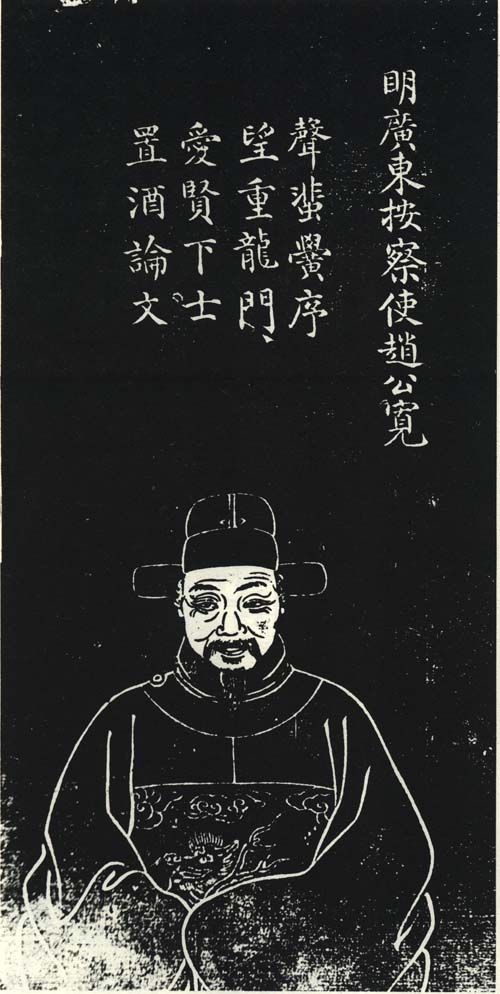 明廣東按察使趙公寬
聲蜚黌序
望重龍門
愛賢下士
置酒論文